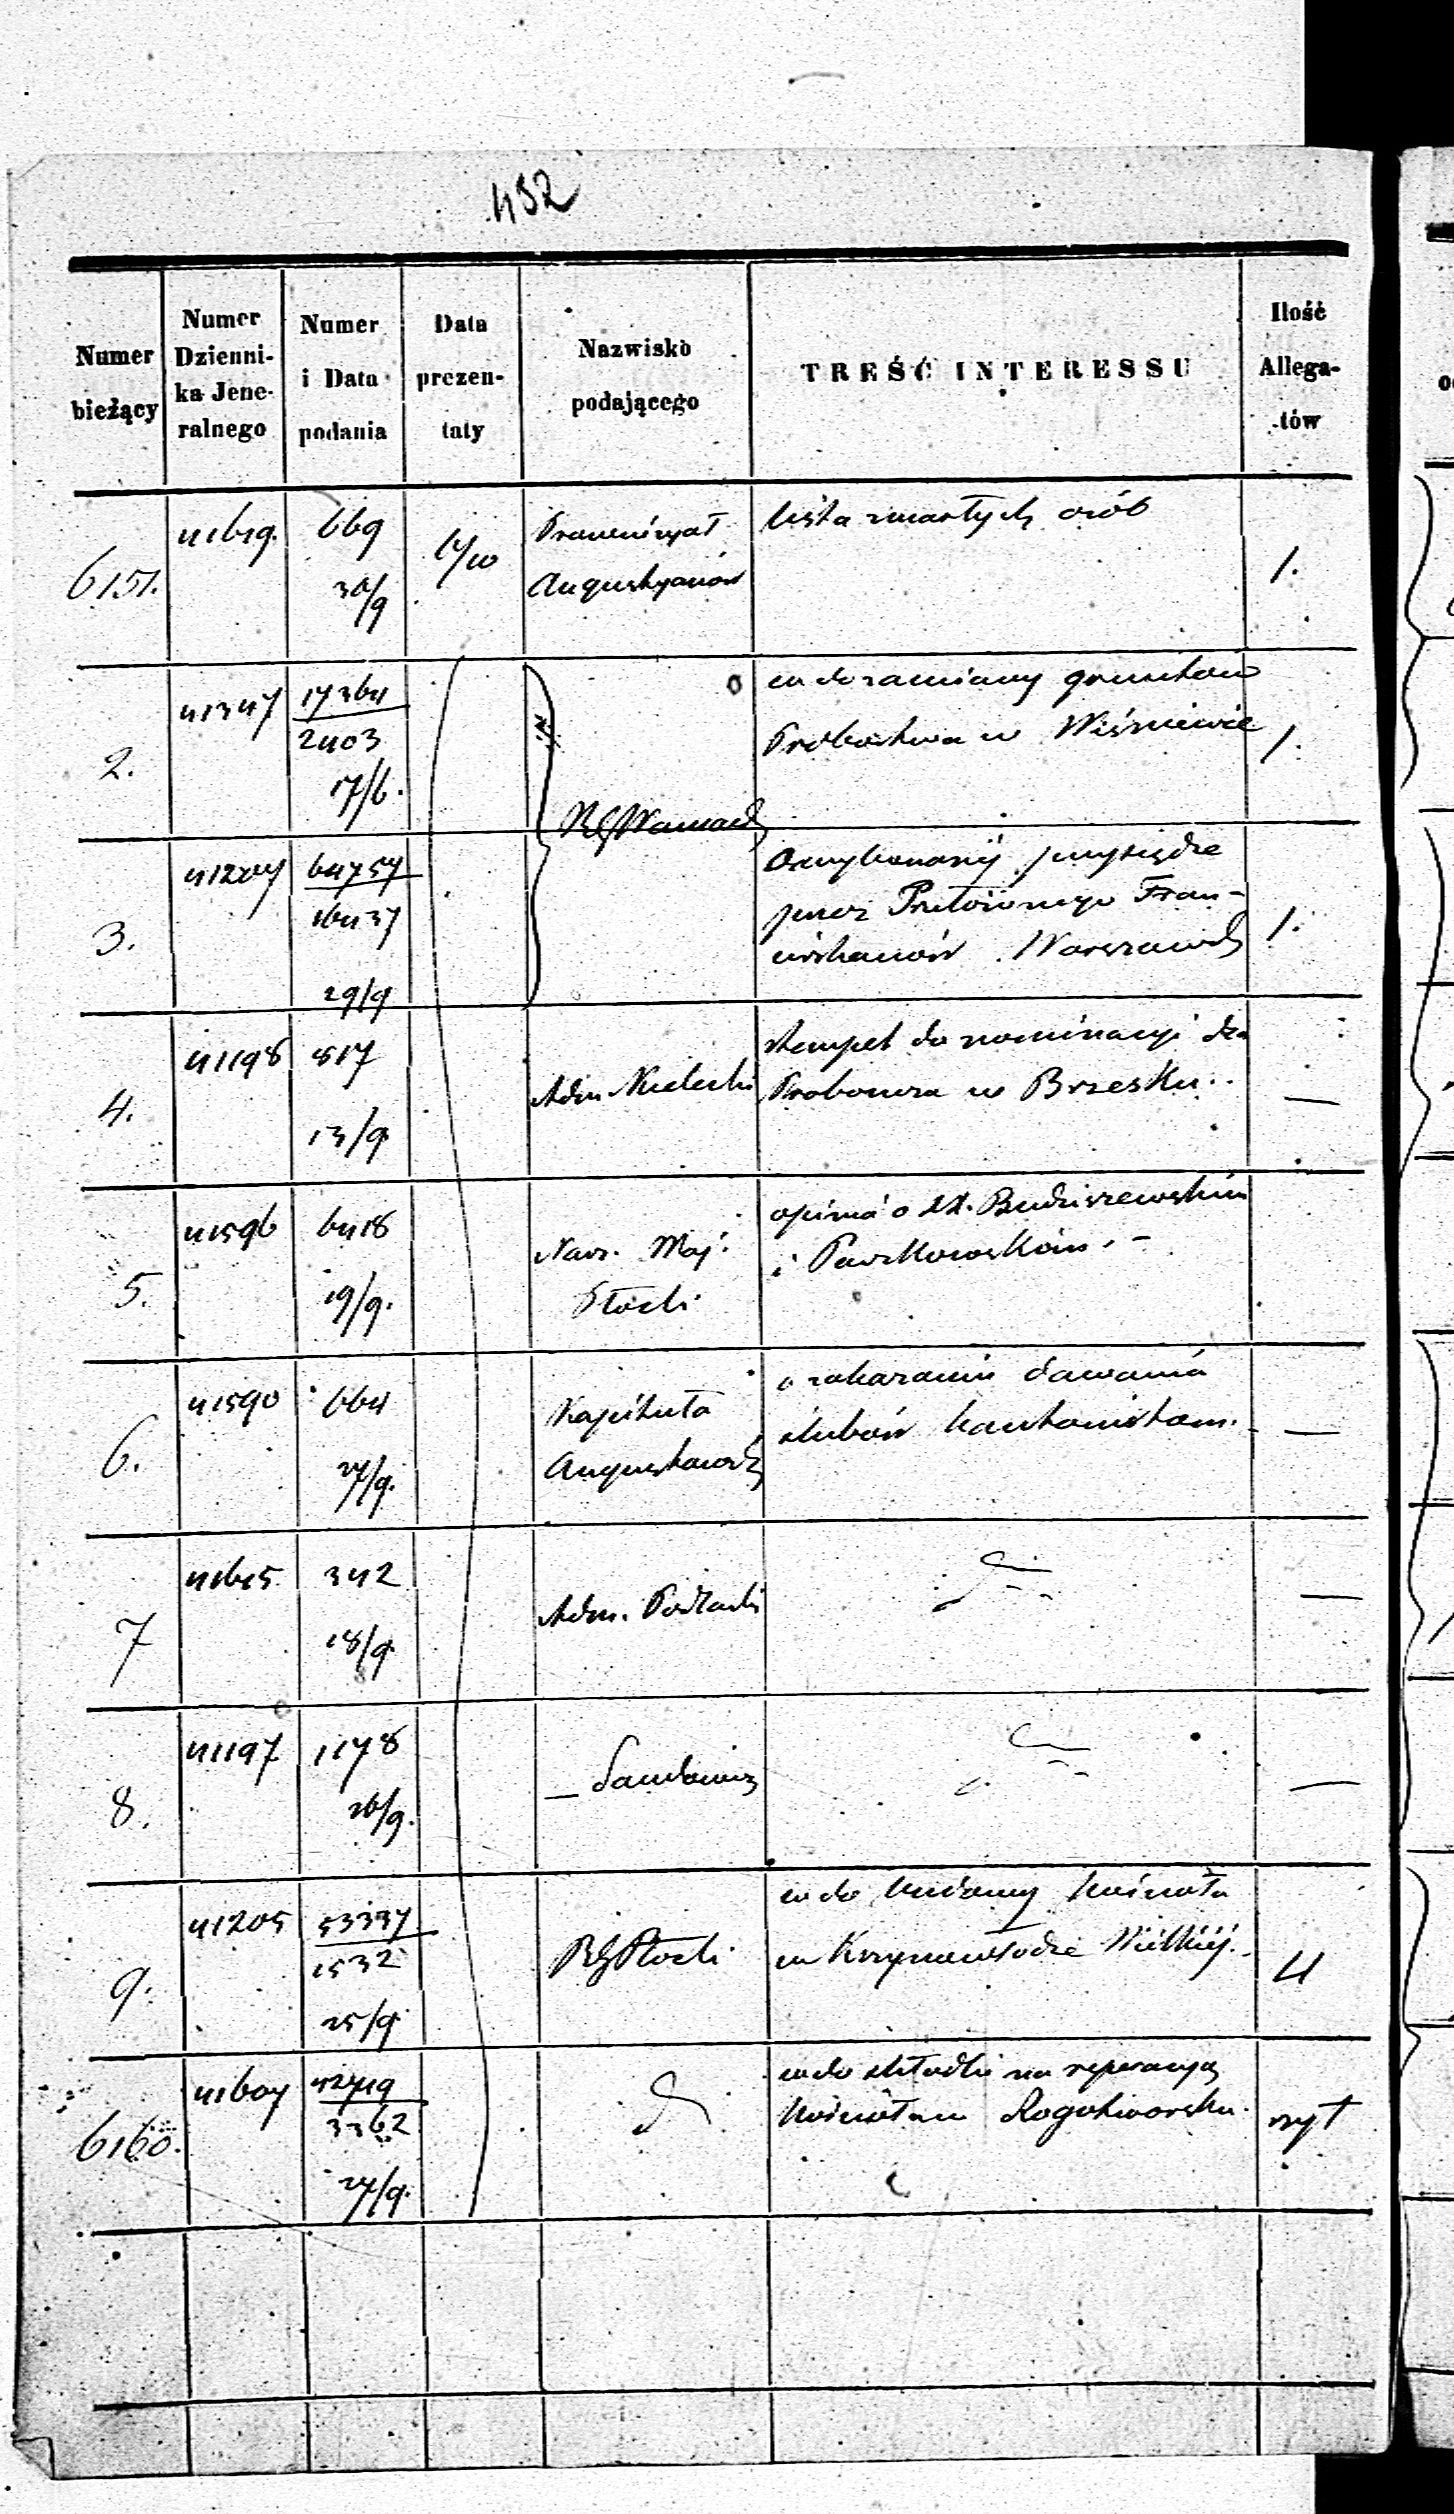 432
Numer bieżący
Numer Dzienni-ka Jene-ralnego
Numer i Data podania
Data prezen-taty
Nazwisko podającego
TREŚĆ INTERESSU
Ilość Allega-tów
6151. 41619. 669 30/9 4/10 Prowincyał Augustyanów
Lista zmarłych osób 1.
2. 41347 17364 2403 17/6.
co do zamiany gruntów
Probostwa w Wiśniewie 1.
RG Warszaws
3. 41204 64757 16437 29/9
przysiędze
przez Przełożonego Fran-
ciszkanów Warszaws 1.
4. 41198 817 13/9 Adm. Kielecki
stempel do nominacyi dla
Proboszcza w Brzesku. —
5. 41596 6418 19/9. Nacz. Woj. Płocki
opinia o XX. Budziszewskim
i Paszkowskim. –
6. 41590 664 27/9. Kapituła Augustows
o zakazanie dawania
ślubów kantonistom. —
7 41615 342 18/9. Adm. Podlaski
—
8. 41197 1178 26/9. — Sandomir
—
9. 41205 53397 1532 25/9. RG Płocki
co do budowy kościoła
w Krzynowłodze Wielkiéj. 4
6160. 41604 52419 3362 27/9. d
co do składki na reperacyą
kościoła w Rogotworsku. szyt